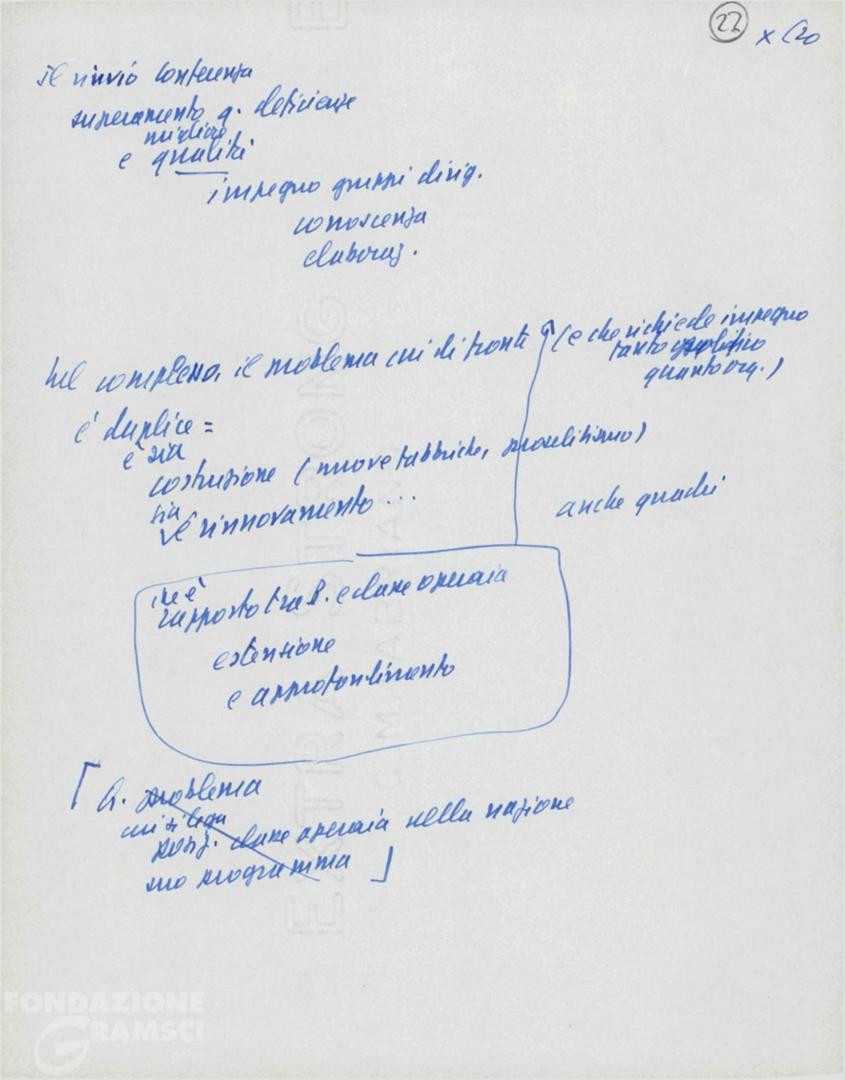 22
x C20
Il rinvio conferenza
superamento q. deficienze
migliore
e qualità
impegno gruppi dirig.
conoscenza
elaboraz.
Nel complesso, il problema cui di fronte (e che richiede impegno
tanto politico
quanto org.)
è duplice =
e sia
costruzione (nuove fabbriche, proselitismo)
sia
e rinnovamento ...
anche quadri
che è
rapporto tra P. e classe operaia
estensione
e approfondimento
[ Q. problema
cui si lega
posiz. classe operaia nella nazione
suo programma ]
EXTRA STRONG
FONDAZIONE
GRAMSCI